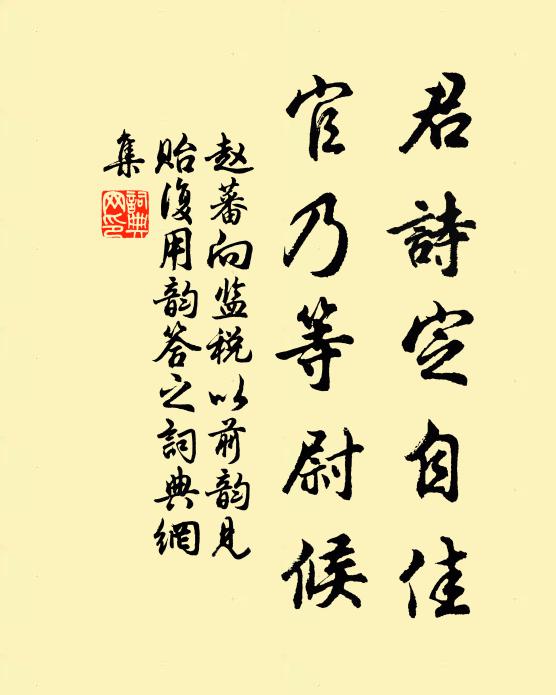 君詩定自佳
官乃等尉候
赵蕃向监税以前韵见
贻復用韵答之詞典網
集
詞典
网印